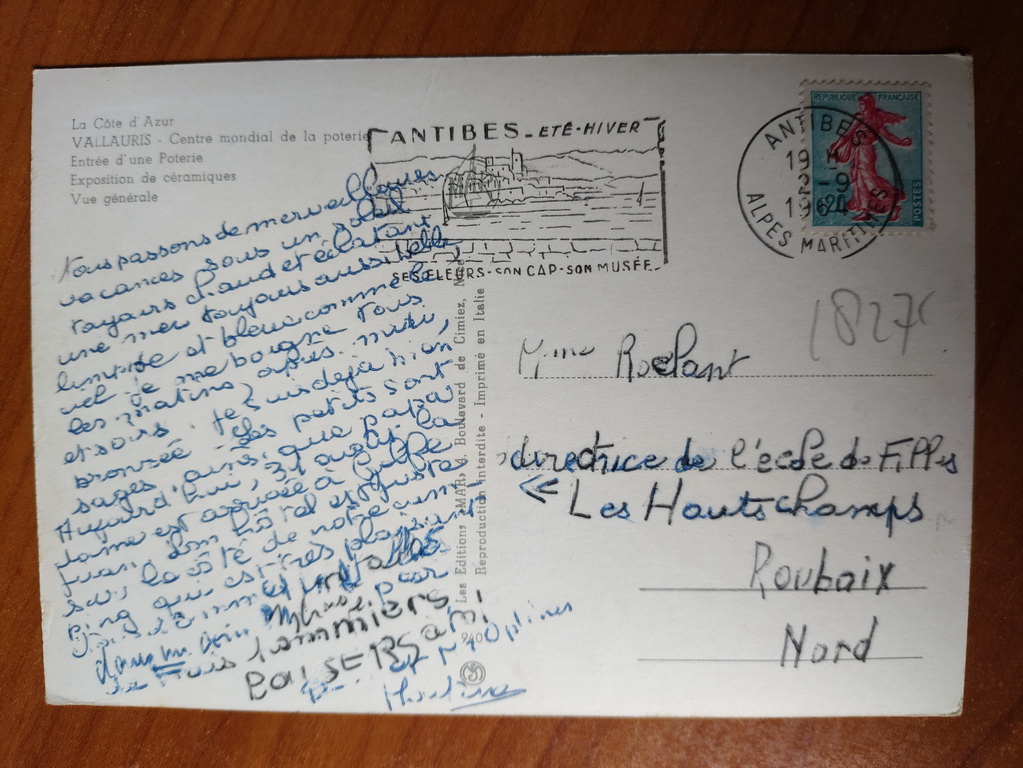 La Côte d'Azur
VALLAURIS - Centre mondial de la poterie
Entrée d'une Poterie
Exposition de céramiques
Vue générale
ANTIBES - ETÉ - HIVER
SES FLEURS - SON CAP - SON MUSÉE
REPUBLIQUE FRANÇAISE
POSTES
0,20
ANTIBES
19 H
2 - 9
1964
ALPES MARITIMES
Nous passons de merveilleuses
vacances sous un soleil
toujours chaud et éclatant
une mer toujours aussi belle
limpide et bleu comme le
ciel je me baigne tous
les matins, après-midi,
et soirs. Je suis déjà bien
bronsée. Les petits sont
sages, ainsi que papa
Aujourd'hui, 31 août, la
dame est arrivée à Golfe
Juan, son hôtel est juste
sur le côté de notre cam
ping qui est très plaisant
dans un coin
pommiers
BAISERS AMI
et M.
1827
Mme Roelant
directrice de l'école de Filles
« Les Hauts champs
Roubaix
Nord
Les Editions "MAR", Boulevard de Cimiez, Nice
Reproduction interdite - Imprimé en Italie
940